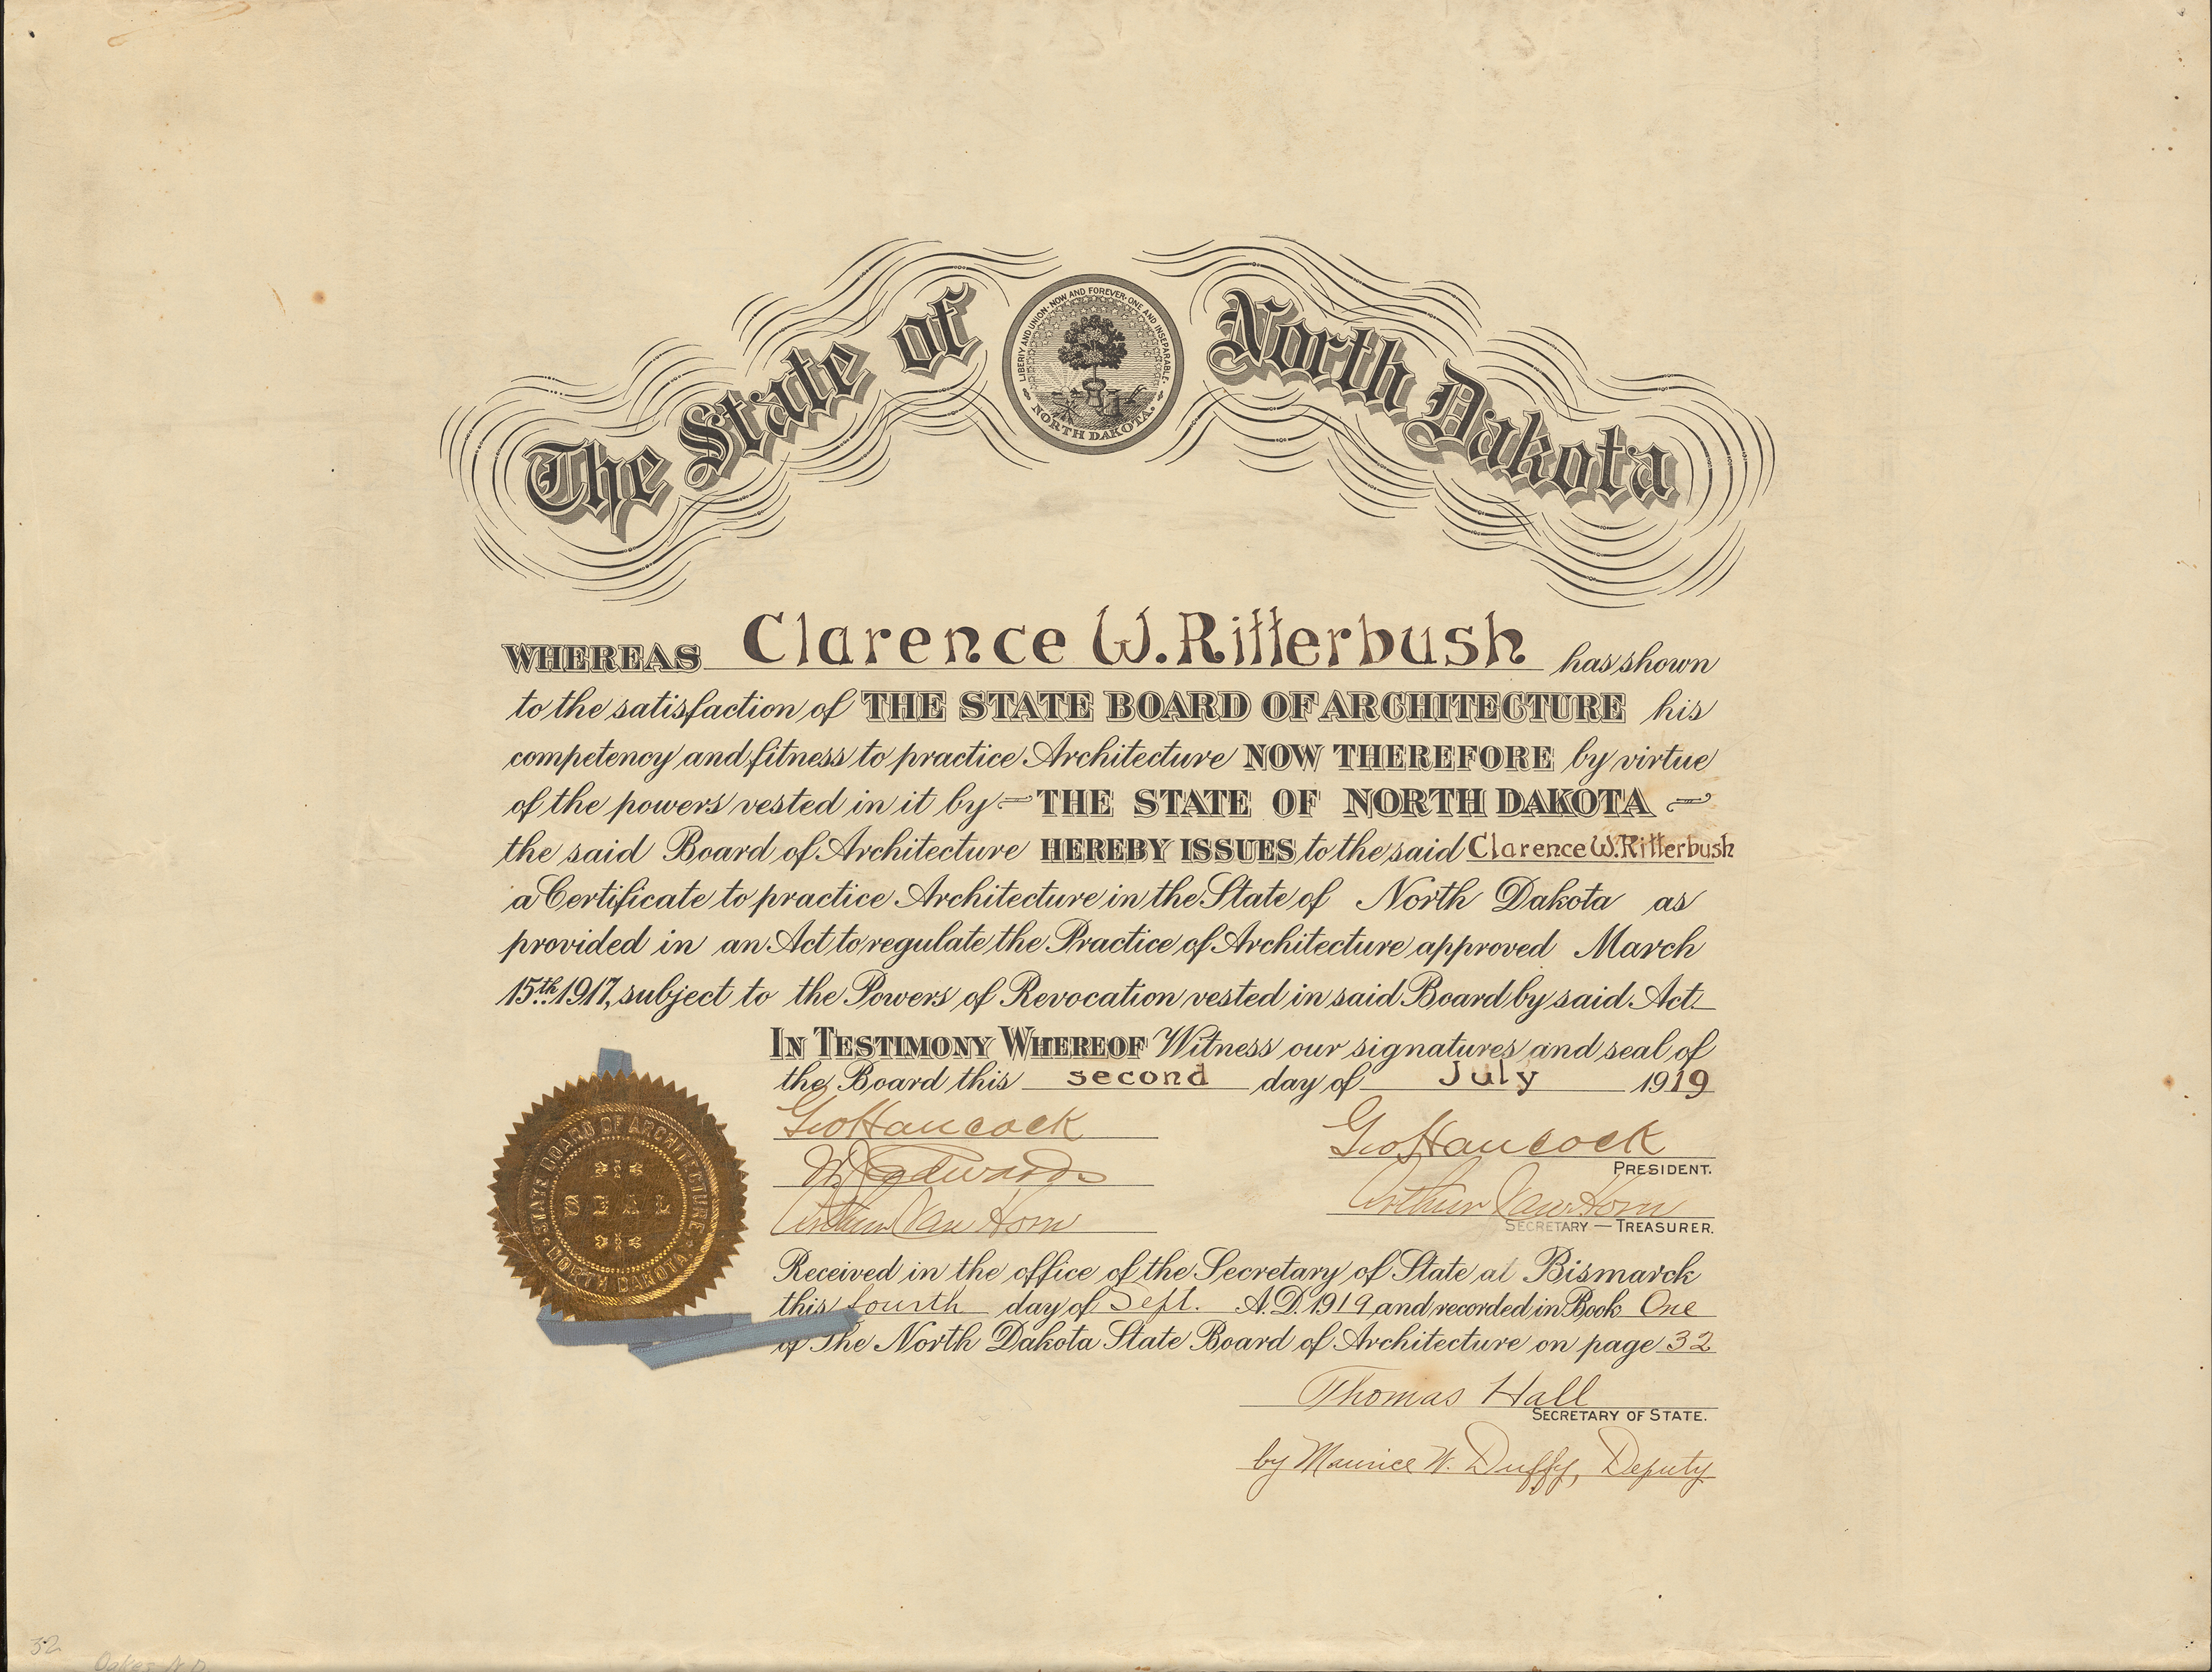 The State of North Dakota
LIBERTY AND UNION · NOW AND FOREVER · ONE AND INSEPARABLE.
NORTH DAKOTA.
WHEREAS Clarence W. Ritterbush has shown
to the satisfaction of THE STATE BOARD OF ARCHITECTURE his
competency and fitness to practice Architecture NOW THEREFORE by virtue
of the powers vested in it by — THE STATE OF NORTH DAKOTA —
the said Board of Architecture HEREBY ISSUES to the said Clarence W. Ritterbush
a Certificate to practice Architecture in the State of North Dakota as
provided in an Act to regulate the Practice of Architecture approved March
15th 1917, subject to the Powers of Revocation vested in said Board by said Act.
IN TESTIMONY WHEREOF Witness our signatures and seal of
the Board this second day of July 1919
Geo Hancock
Geo Hancock
PRESIDENT.
Edwards
Arthur Van Horn
Arthur Van Horn
SECRETARY — TREASURER.
STATE BOARD OF ARCHITECTURE
SEAL
NORTH DAKOTA
Received in the office of the Secretary of State at Bismarck
this fourth day of Sept. A.D. 1919, and recorded in Book One
of The North Dakota State Board of Architecture on page 32
Thomas Hall
SECRETARY OF STATE.
by Maurice W. Duffy, Deputy
32
Oakes N.D.